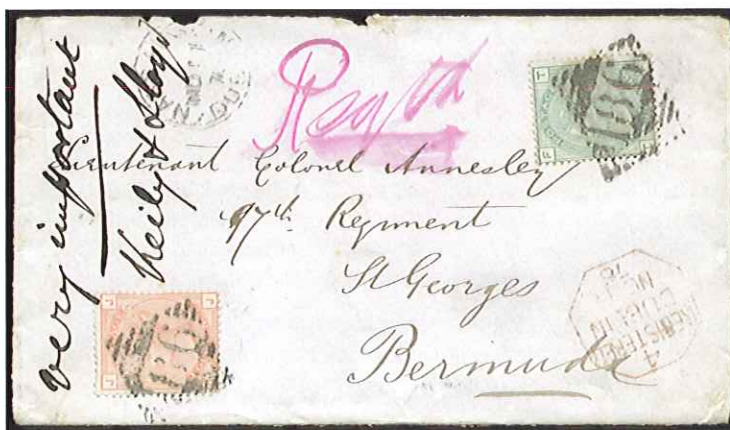 very important
Keily & Lloyd
Regd
Lieutenant Colonel Annesley
97th Regiment
St Georges
Bermuda
186
186
REGISTERED
DUBLIN
4